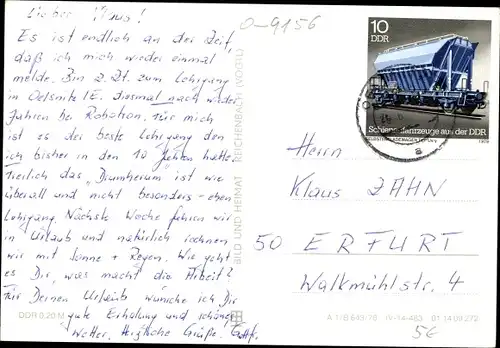 Lieber Klaus!
Es ist endlich an der Zeit,
daß ich mich wieder einmal
melde. Bin z. Zt. zum Lehrgang
in Oelsnitz / E. diesmal nach vielen
Jahren bei Robotron. Für mich
ist es der beste Lehrgang den
ich bisher in den 10 Jahren hatte.
Freilich das "Drumherum" ist wie
überall und nicht besonders - eben
Lehrgang. Nächste Woche fahren wir
in Urlaub und natürlich rechnen
wir mit Sonne + Regen. Wie geht
es Dir, was macht die Arbeit?
Für Deinen Urlaub wünsche ich Dir
gute Erholung und schönes
Wetter. Herzliche Grüße
DDR 0,20 M
BILD UND HEIMAT REICHENBACH (VOGTL)
0-9156
10
DDR
Schienenfahrzeuge aus der DDR
1979
Herrn
Klaus ZAHN
50 ERFURT
Walkmühlstr. 4
A 1/B 643/78 IV-14-483 01 14 09 272
5€